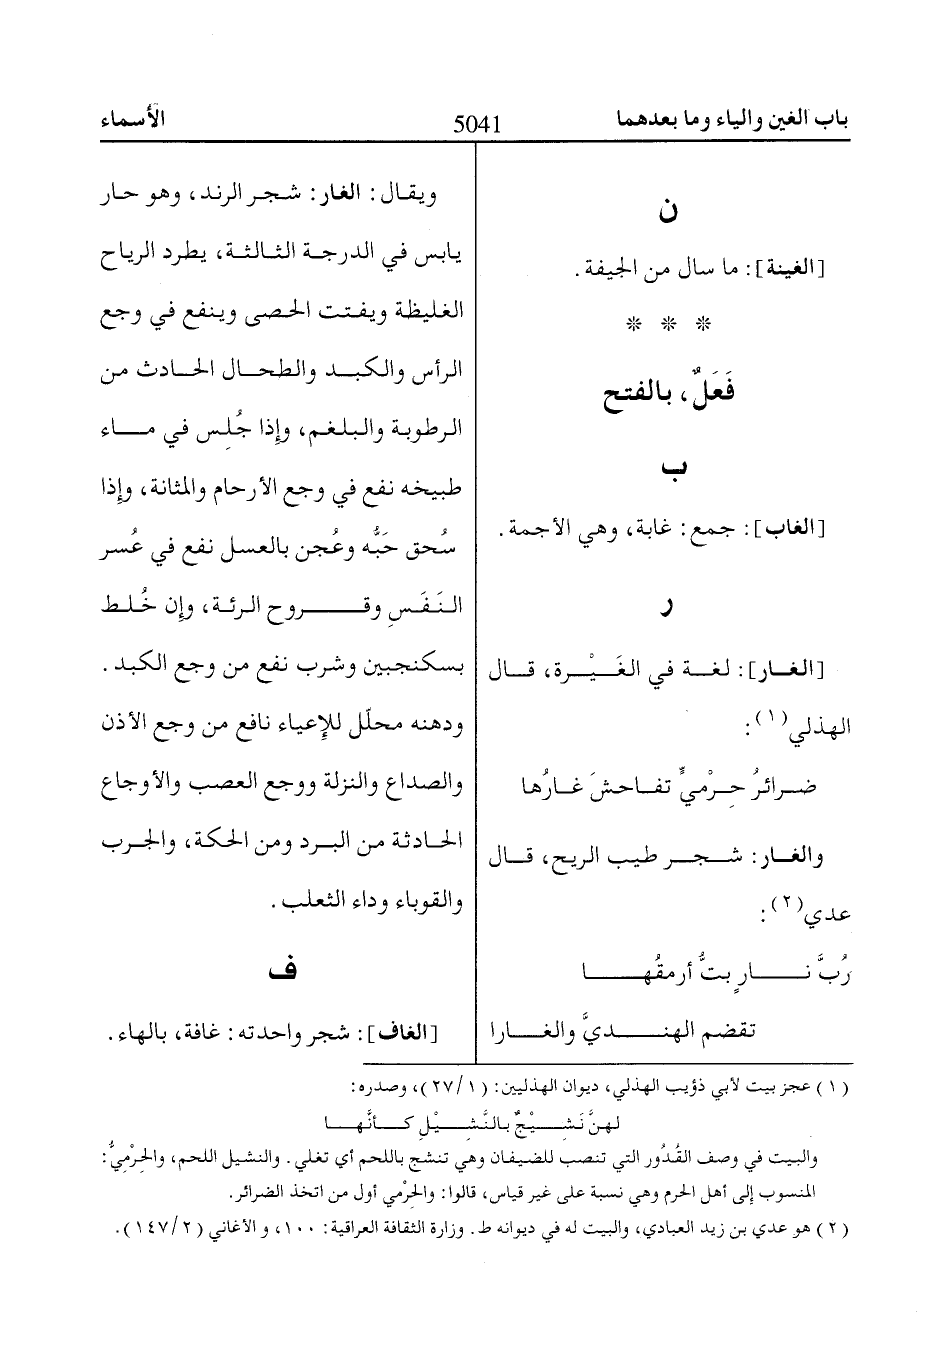 باب الغين والياء وما بعدهما
5041
الأسماء
ن
[الغينة]: ما سال من الجيفة.
* * *
فَعَلٌ، بالفتح
ب
[الغاب]: جمع: غابة، وهي الأجمة.
ر
[الغار]: لغة في الغَيْرة، قال
الهذلي(١):
ضرائرُ حِرْميٍّ تفاحشَ غارُها
والغار: شجر طيب الريح، قال
عدي(٢):
رُبَّ نارٍ بتُّ أرمقُها
تقضم الهنديَّ والغارا
ويقال: الغار: شجر الرند، وهو حار
يابس في الدرجة الثالثة، يطرد الرياح
الغليظة ويفتت الحصى وينفع في وجع
الرأس والكبد والطحال الحادث من
الرطوبة والبلغم، وإذا جُلِس في ماء
طبيخه نفع في وجع الأرحام والمثانة، وإذا
سُحق حَبُّه وعُجن بالعسل نفع في عُسر
النَفَسِ وقروح الرئة، وإن خُلط
بسكنجبين وشرب نفع من وجع الكبد.
ودهنه محلّل للإعياء نافع من وجع الأذن
والصداع والنزلة ووجع العصب والأوجاع
الحادثة من البرد ومن الحكة، والجرب
والقوباء وداء الثعلب.
ف
[الغاف]: شجر واحدته: غافة، بالهاء.
(١) عجز بيت لأبي ذؤيب الهذلي، ديوان الهذليين: (٢٧/١)، وصدره:
لهنَّ نَشِيْجٌ بالنَّشِيْلِ كأنَّها
والبيت في وصف القُدُور التي تنصب للضيفان وهي تنشج باللحم أي تغلي. والنشيل اللحم، والحِرْميُّ:
المنسوب إلى أهل الحرم وهي نسبة على غير قياس، قالوا: والحِرْمي أول من اتخذ الضرائر.
(٢) هو عدي بن زيد العبادي، والبيت له في ديوانه ط. وزارة الثقافة العراقية: ١٠٠، و الأغاني (١٤٧/٢).